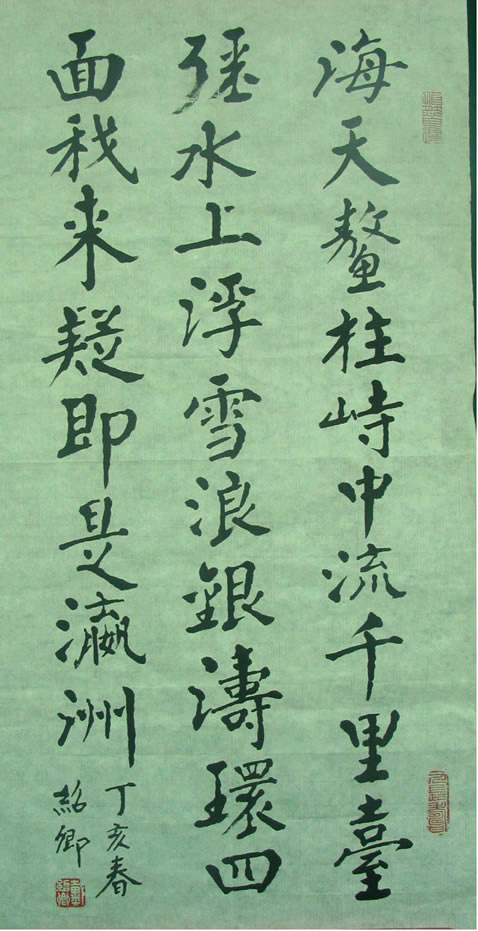 海天鼇柱峙中流千里臺
疆水上浮雪浪銀濤環四
面我来疑即是瀛洲
丁亥春
紹卿